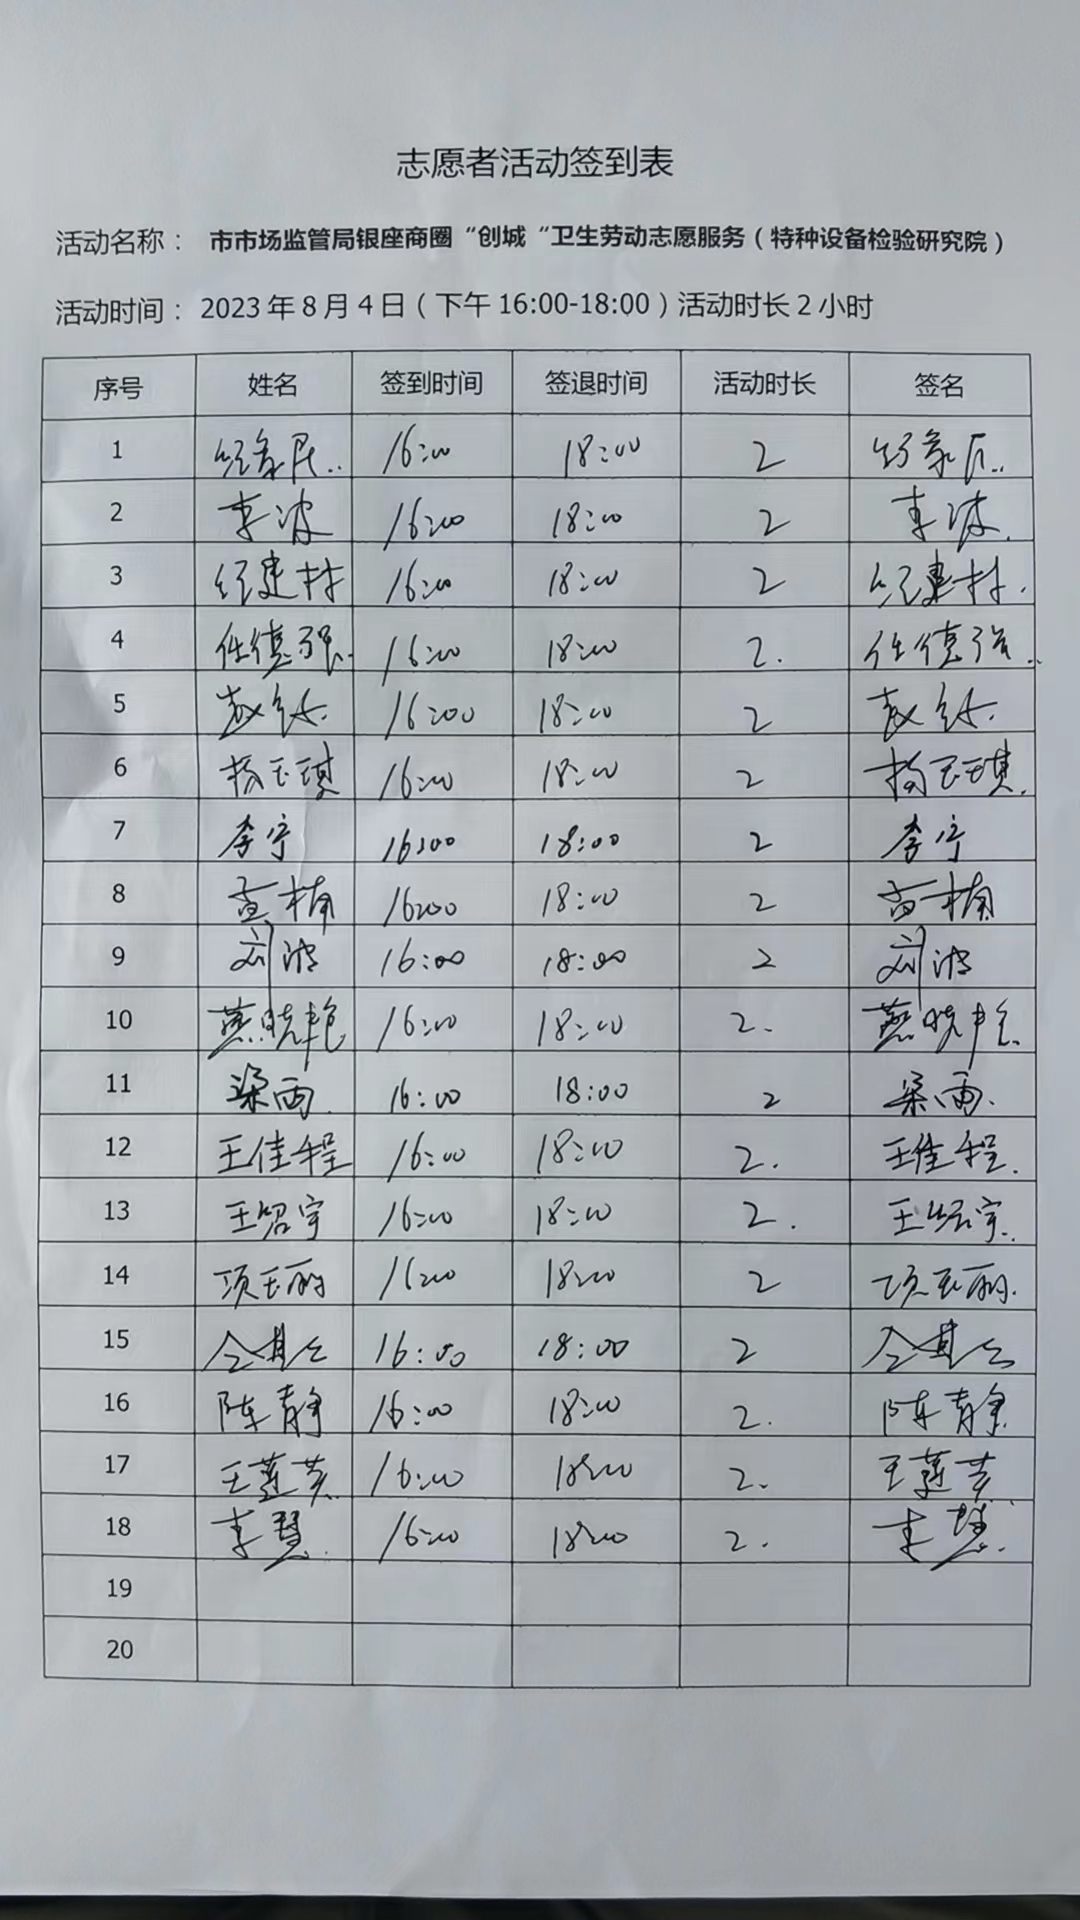 志愿者活动签到表
活动名称： 市市场监管局银座商圈“创城“卫生劳动志愿服务（特种设备检验研究院）
活动时间： 2023年8月4日（下午16:00-18:00）活动时长2小时
序号 姓名 签到时间 签退时间 活动时长 签名
1 16:00 18:00 2
2 李波 16:00 18:00 2 李波
3 经建村 16:00 18:00 2 经建村
4 任德强 16:00 18:00 2. 任德强
5 16:00 18:00 2
6 杨玉琪 16:00 18:00 2 杨玉琪
7 李宁 16:00 18:00 2 李宁
8 苗楠 16:00 18:00 2 苗楠
9 刘波 16:00 18:00 2 刘波
10 燕晓艳 16:00 18:00 2. 燕晓艳
11 梁雨 16:00 18:00 2 梁雨
12 王佳程 16:00 18:00 2. 王佳程
13 王绍宇 16:00 18:00 2. 王绍宇
14 项玉丽 16:00 18:00 2 项玉丽
15 16:00 18:00 2
16 陈静 16:00 18:00 2. 陈静
17 16:00 18:00 2.
18 李慧 16:00 18:00 2. 李慧
19
20